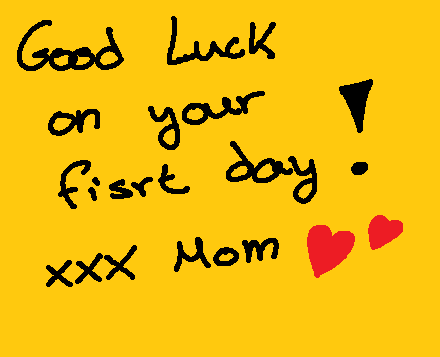 Good Luck
on your
fisrt day!
xxx Mom